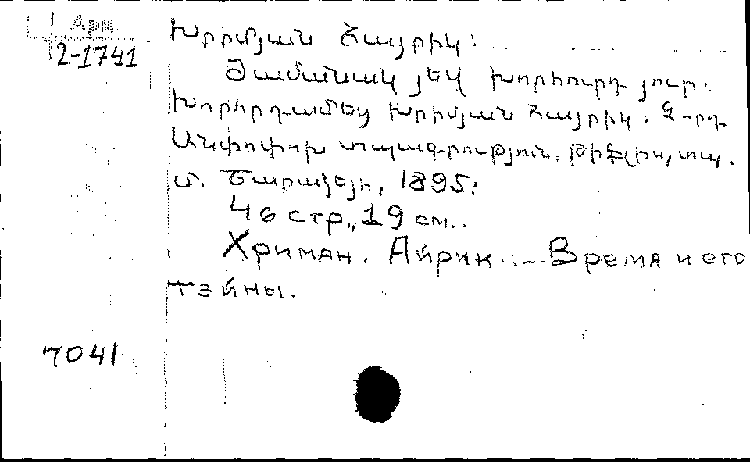 Арм
2-1741
Խրիմյան Հայրիկ:
Ժամանակ յեվ խորհուրդ յուր.
Խորհրդածեց Խրիմյան Հայրիկ. 2-րդ
Անփոփոխ տպագրություն. Թիֆլիս, տպ.
Մ. Շարաձեյի, 1895:
46 стр., 19 см..
Хримян. Айрик. — Время и его
тайны.
7041